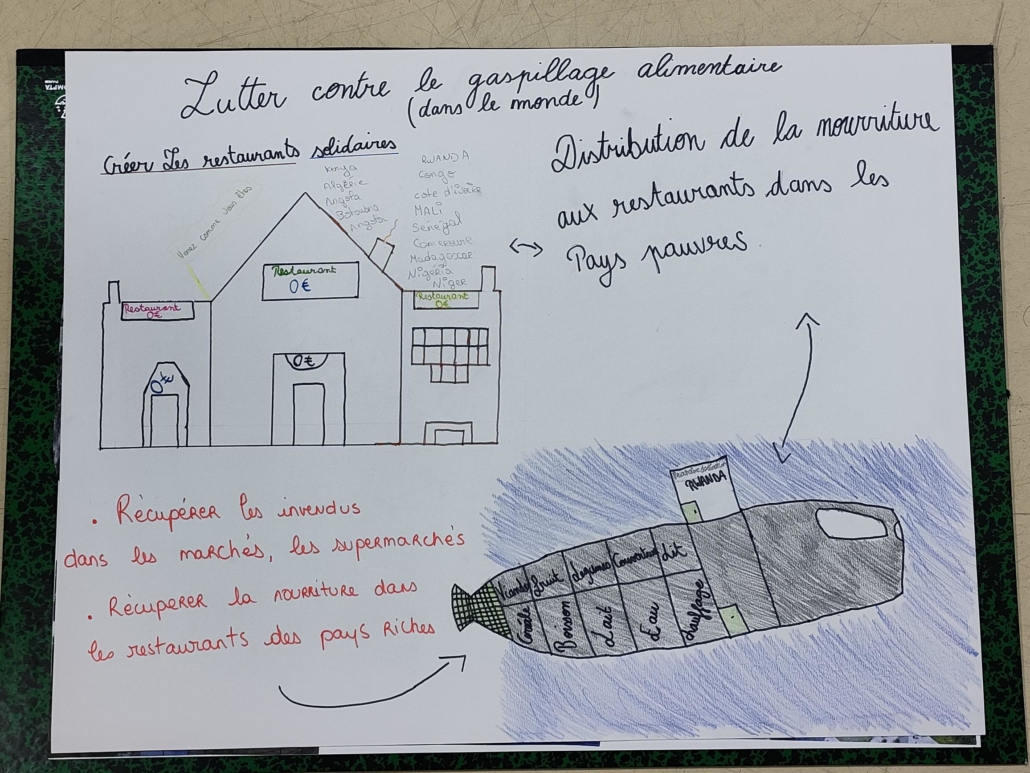 Lutter contre le gaspillage alimentaire
(dans le monde)
Créer Les restaurants solidaires
Venez comme vous êtes
Kenya
Algérie
Angola
Botswana
Angola
RWANDA
Congo
cote d'ivoire
MALi
Senegal
Cameroune
Madagascar
Nigéria
Niger
Restaurant
0€
Restaurant
0€
Restaurant
0€
0€
0€
Distribution de la nourriture
aux restaurants dans les
Pays pauvres
. Récupérer les invendus
dans les marchés, les supermarchés
. Récuperer la nourriture dans
les restaurants des pays Riches
RWANDA
Viande
fruit
Legumes
Lit
Boison
Lait
Eau